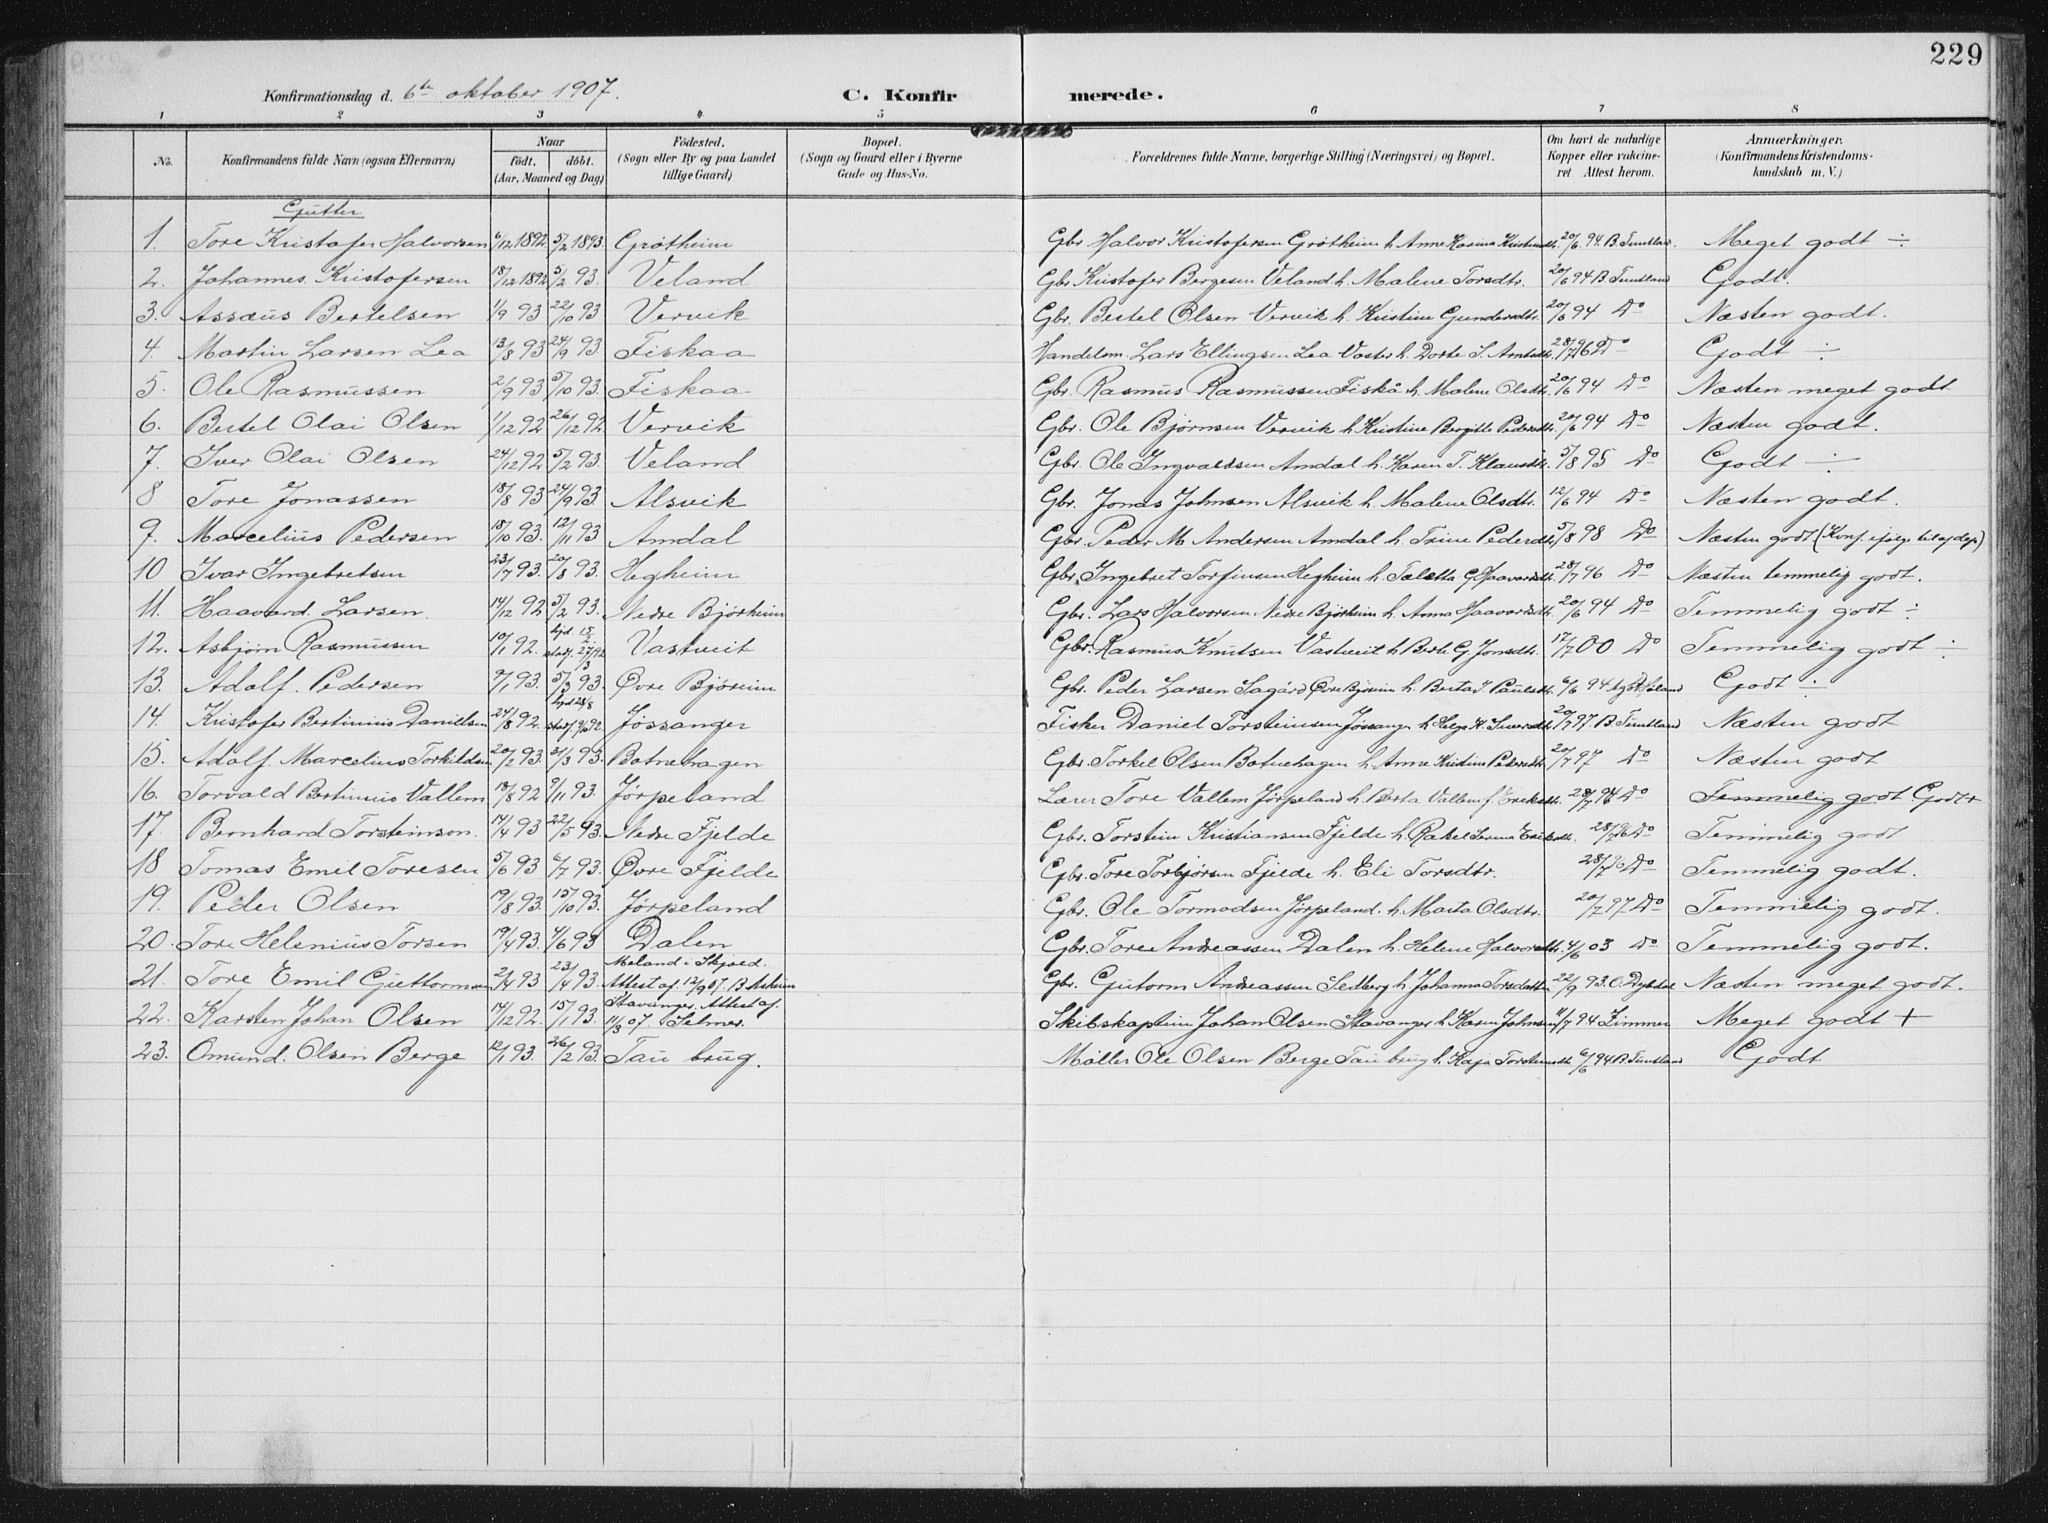 229
Konfirmationsdag d. 6te oktober 1907. C. Konfirmerede.
1 2 3 4 5 6 7 8
No. Konfirmandens fulde Navn (ogsaa Efternavn) Naar födt. döbt. (Aar, Maaned og Dag) Födested. (Sogn eller By og paa Landet tillige Gaard) Bopæl. (Sogn og Gaard eller i Byerne Gade og Hus-No.) Forældrenes fulde Navne, borgerlige Stilling (Næringsvei) og Bopæl. Om havt de naturlige Kopper eller vaccineret Attest herom. Anmærkninger. (Konfirmandens Kristendomskundskab m. V.)
Gutter
1. Tore Kristofer Halvorsen 6/12 1892 5/2 1893 Grötheim Gbr Halvor Kristofersen Grötheim h. Anne 20/6 94 B. Tuntland Meget godt ÷
2. Johannes Kristofersen 18/12 1892 5/2 93 Veland Gbr Kristofer Bergesen Veland h. Malene Torsdtr. 20/6 94 B. Tuntland Godt.
3. Assæus Bertelsen 1/9 93 22/10 93 Vervik Gbr. Bertel Olsen Vervik h. Kristine Gundersdtr. 20/6 94 Do Næsten godt.
4. Martin Larsen Lea 13/8 93 24/9 93 Fiskaa Handelsm. Lars Ellingsen Lea Vostr h. Dorte S. 28/7 96 Do Godt ÷
5. Ole Rasmussen 2/9 93 5/10 93 Fiskaa Gbr. Rasmus Rasmussen Fiskå h. Malene Olsdtr. 20/6 94 Do Næsten meget godt
6. Bertel Olai Olsen 1/12 92 26/12 92 Vervik Gbr. Ole Bjørnsen Vervik h. Kristine Bergitte Pedersdtr 20/6 94 Do Næsten godt.
7. Iver Olai Olsen 24/12 92 5/2 93 Veland Gbr. Ole Ingvaldsen Amdal h. Karen T. Klausdtr 5/8 95 Do Godt ÷
8 Tore Jonassen 18/8 93 24/9 93 Alsvik Gbr. Jonas Johnsen Alsvik h. Malene Olsdtr. 12/6 94 Do Næsten godt.
9. Marcelius Pedersen 18/10 93. 12/11 93 Amdal Gbr. Peder M Andersen Amdal h. Trine Pedersdtr. 5/8 98 Do Næsten godt (Konf.
10 Ivar Ingebretsen 23/7 93. 20/8 93. Hegheim Gbr. Ingebret Torfinsen Hegheim h. Taletta G Haavardsdtr. 28/7 96 Do Næsten temmelig godt.
11. Haavard Larsen. 14/12 92 5/2 93. Nedre Bjørheim Gbr. Lars Halvorsen Nedre Bjørheim h. Anna Haavardsdtr 20/6 94 Do Temmelig godt ÷
12. Asbjørn Rasmussen 10/1 92. hjd. 15/2 stadf. 27/3 92 Vastveit Gbr. Rasmus Knutsen Vastveit h Berte G. Jonsdtr. 17/7 00 Do Temmelig godt ÷
13. Adolf. Pedersen 7/1 93. 5/3 93. Øvre Bjøreim Gbr. Peder Larsen Sagård Øvre Bjøreim h. Berta I. Paulsdtr. 6/6 94 Godt ÷
14. Kristofer Bertinius Danielsen 24/8 92. hjd 28/8 stadf 92 Jössanger Fisker Daniel Torsteinsen Jøssang h Helga K 20/7 97. B Tuntland Næsten godt
15. Adolf. Marcelius Torkildsen 20/2 93. 31/3 93. Botnehagen Gbr. Torkel Olsen Botnehagen h. Anne Kristine Pedersdtr 20/7 97 Do Næsten godt
16. Torvald Bertinius Vallem 18/8 92 9/11 93. Jørpeland Lærer Tore Vallem Jørpeland h Berta Vallem f. Eriksdtr. 28/7 96 Do Temmelig godt Godt+
17. Bernhard Torsteinson. 14/4 93 22/5 93. Nedre Fjelde Gbr. Torstein Kristiansen Fjelde h. Rakel Serina Eriksdtr. 28/7 96 Do Temmelig godt
18 Tomas Emil Toresen 5/6 93 6/7 93. Øvre Fjelde Gbr. Tore Torbjørsen Fjelde h. Eli Torsdtr. 28/7 96 Do Temmelig godt.
19. Peder Olsen 19/8 93. 15/10 93. Jørpeland Gbr. Ole Tormodsen Jørpeland. h. Marta Olsdtr. 20/7 97 Do Temmelig godt.
20. Tore Helenius Torsen 19/4 93. 4/6 93 Dalen Gbr. Tore Andreassen Dalen h. Helene Halvorsdtr. 4/6 03 Do Temmelig godt.
21. Tore Emil Guttormsen 2/4 93 23/4 93. Meland i Skjold. Attest af. 12/9 07. B Askeim Gbr. Gutorm Andreassen Sedberg h Johanna Torsdatter 22/9 93. O. Dybdal Næsten meget godt.
22. Karsten Johan Olsen 14/12 92. 15/1 93. Stavanger. Attest af. 11/3 07. Selmer. Skibskaptein Johan Olsen Stavanger h Karen Johnsen 11/7 94 Zimmer Meget godt +
23. Omund. Olsen Berge 12/1 93. 26/2 93. Tau brug. Møller Ole Olsen Berge Tau brug h. Kaja Torsteinsdtr. 6/6 94 B. Tuntland Godt